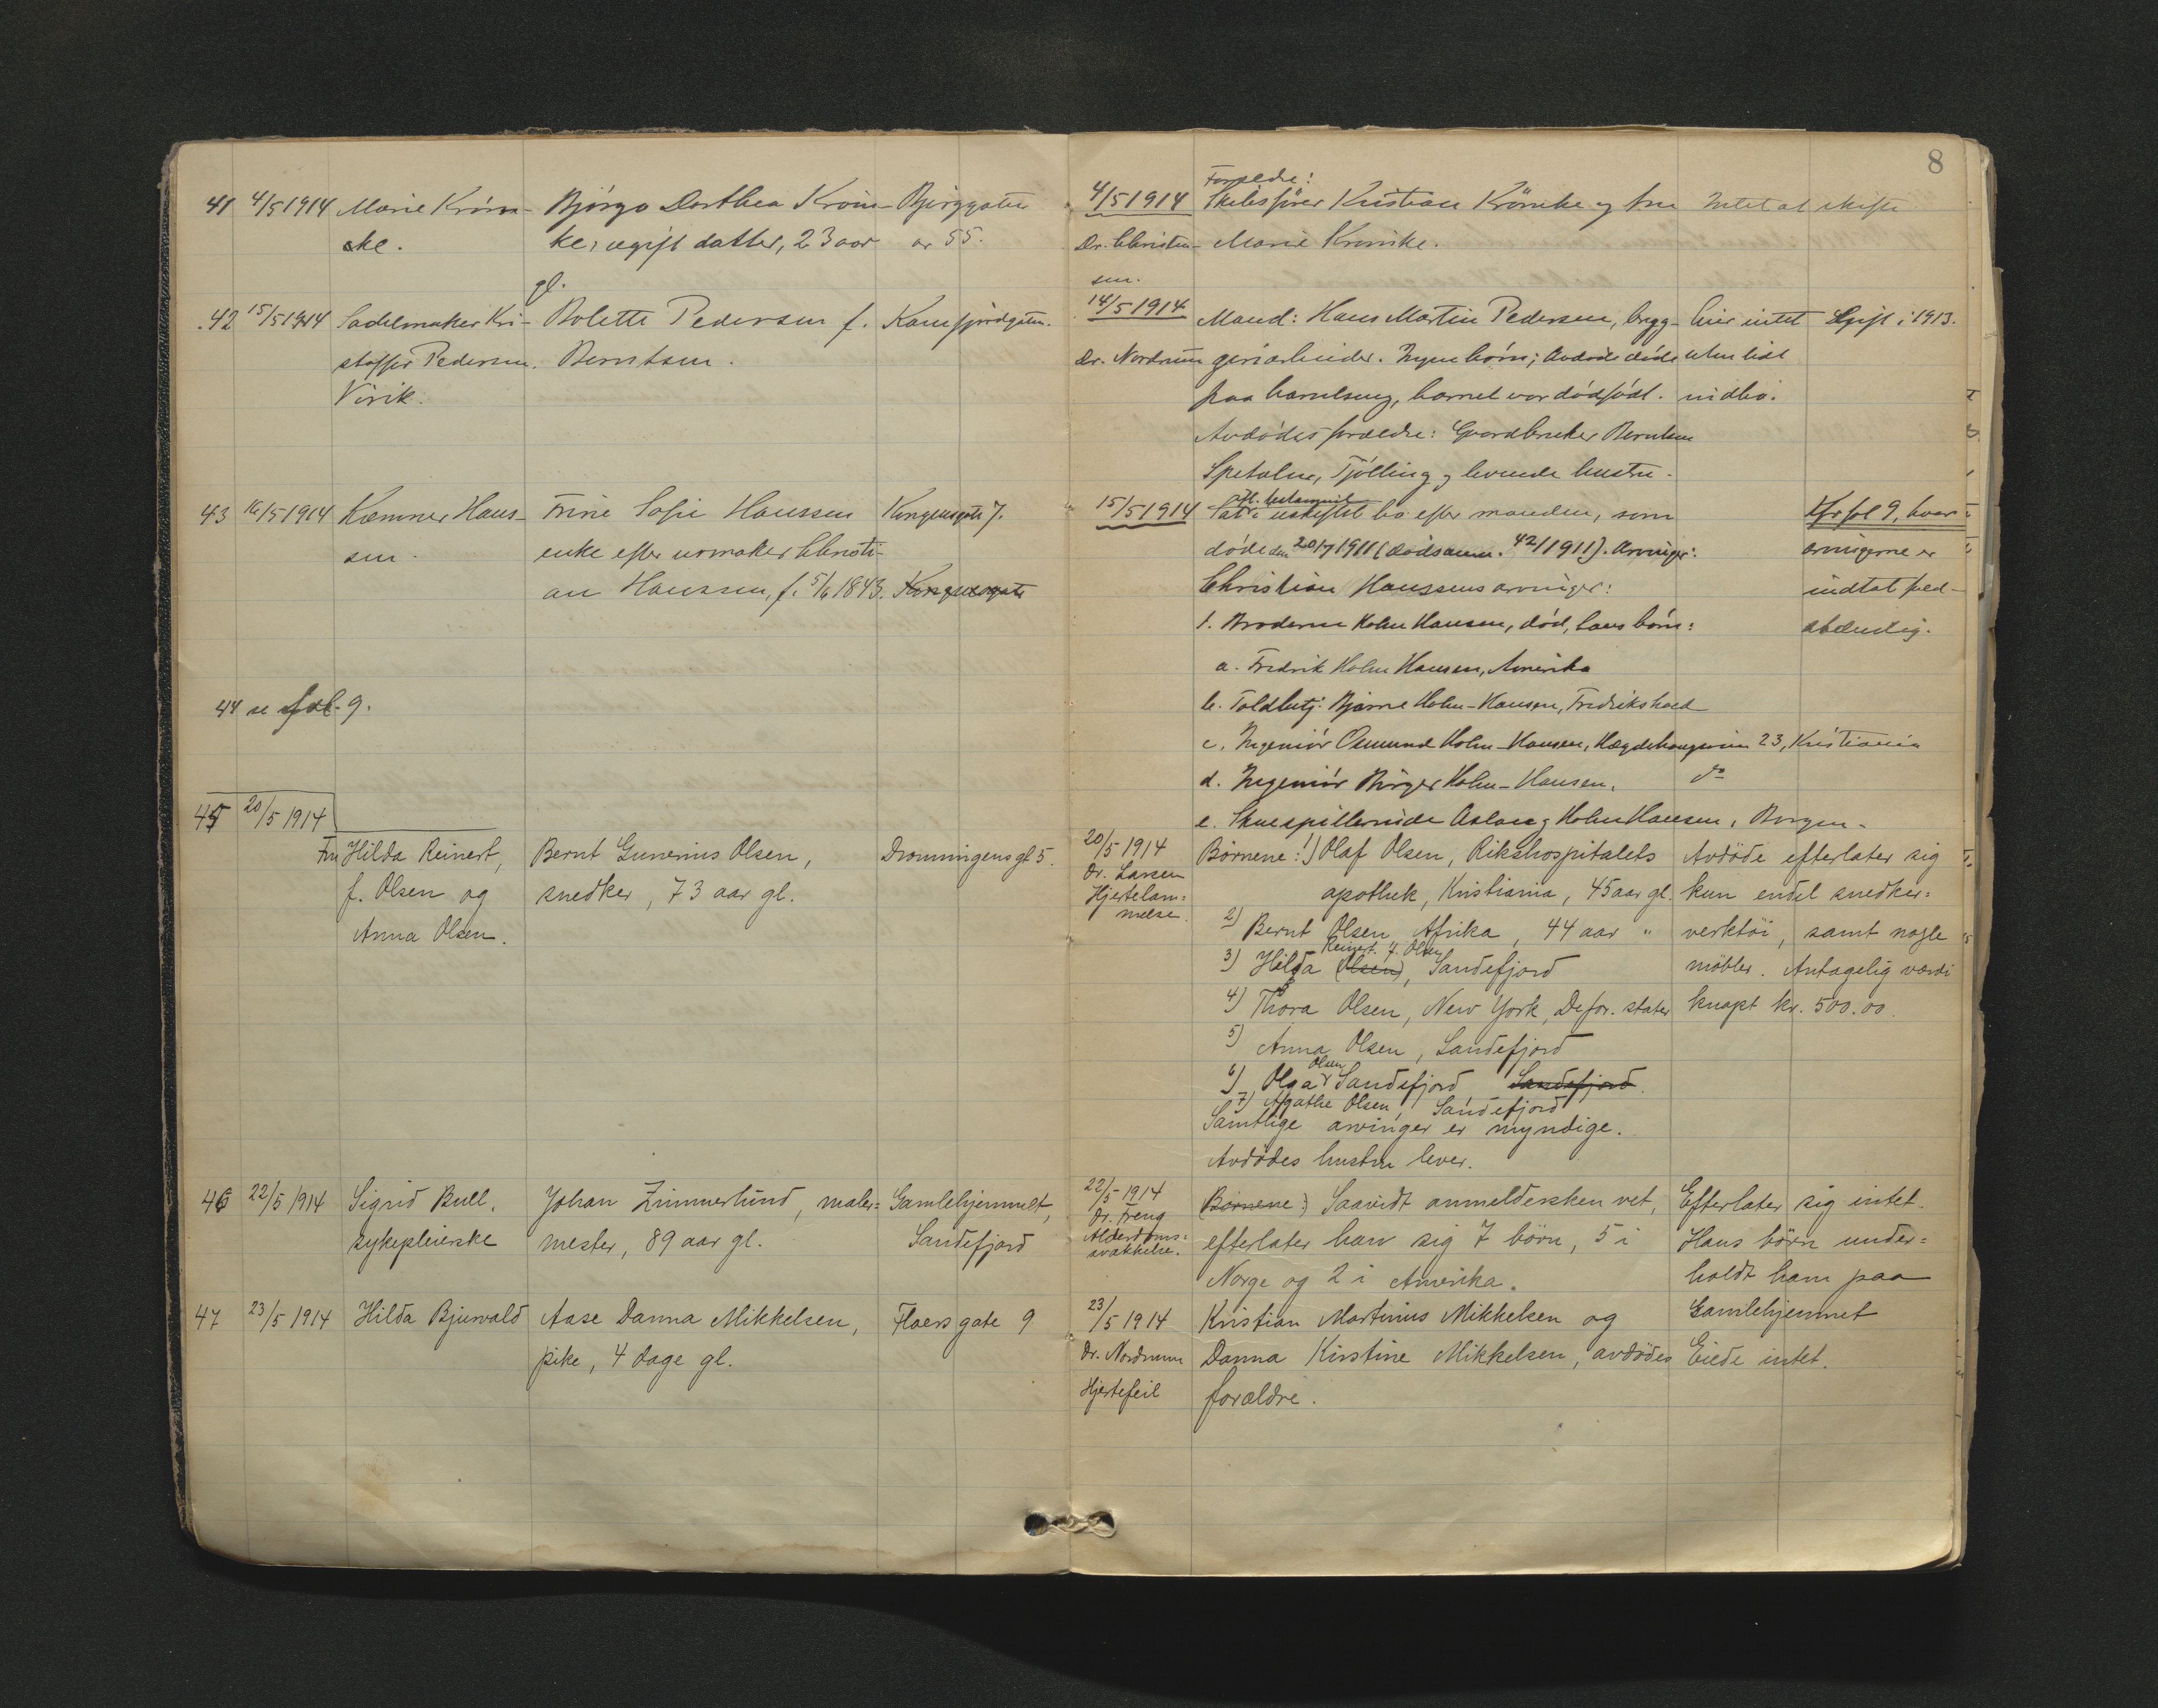 8
41 4/5 1914 Marie Krøns- Bjørgo Dorthea Krøni- Bjerggaten
ke. ke, ugift datter, 23 aar nr 55.
gl.
4/5 1914 Forældre:
Skibsfører Kristian Krönike og fru Intet at skifte
Dr. Christen- Marie Krønike.
sen.
42 15/5 1914 Sadelmaker Kri- Bolette Pedersen f. Kamfjordgaten.
stoffer Pedersen, Berntsen.
Virik.
14/5 1914 Mand: Hans Martin Pedersen, brygg- Eier intet Gift i 1913.
Dr. Nordrum geriarbeider. Ingen børn; Avdøde døde uten lidt
paa barselseng, barnet var dødfødt. indbo.
Avdødes forældre: Gaardbruker Berntsen
Tjølling og levende hustru.
43 16/5 1914 Kæmner Hans- Trine Sofie Hanssen Kongensgate 7.
sen. enke efter urmaker Christi-
an Hanssen, f. 5/6 1843. Kongensgate
15/5 1914 efl. testament
Sat i uskiftet bo efter manden, som Jfr fol 9, hvor
døde den 20/7 1911 (dødsanm. 42/1911). Arvinger: arvingerne er
Christian Hanssens arvinger: indtat fuld-
1. Broderen Holm Hansen, død, hans børn: stændig.
a. Fredrik Holm Hansen, Amerika
b. Toldbetj. Bjarne Holm-Hansen, Fredrikshald
c. Ingeniör Osmund Holm-Hansen, Hægdehaugsveien 23, Kristiania
d. Ingeniör Birger Holm-Hansen, do
e. Skuespillerinde Aslaug Holm Hansen, Bergen.
44 se fol. 9.
45 20/5 1914
Fru Hilda Reinert, Bernt Gunerius Olsen, Dronningensgt 5.
f. Olsen og snedker, 73 aar gl.
Anna Olsen.
20/5 1914 Børnene: 1) Olaf Olsen, Rikshospitalets Avdöde efterlater sig
Dr. Larsen
Hjertelam= apothek, Kristiania, 45 aar gl. kun endel snedker=
melse. 2) Bernt Olsen, Afrika, 44 aar " verktöi, samt nogle
Reinert f. Olsen
3) Hilda (Olsen), Sandefjord möbler. Antagelig værdi
4) Thora Olsen, New York, De for. stater knapt kr. 500.00.
5) Anna Olsen, Sandefjord
Olsen
6) Olga Sandefjord Sandefjord.
7) Agathe Olsen, Sandefjord
Samtlige arvinger er myndige.
Avdödes hustru lever.
46 22/5 1914 Sigrid Bull, Johan Zimmerlund, maler= Gamlehjemmet,
sykepleierske mester, 89 aar gl. Sandefjord
22/5 1914 (Børnene:) Saavidt anmeldersken vet, Efterlater sig intet.
Dr. Freng
Alderdoms= efterlater han sig 7 börn, 5 i Hans börn under=
svakkelse. Norge og 2 i Amerika. holdt ham paa
Gamlehjemmet
47 23/5 1914 Hilda Bjuvald Aase Danna Mikkelsen, Floers gate 9
pike, 4 dage gl.
23/5 1914 Kristian Martinius Mikkelsen og
Dr. Nordrum Danna Kirstine Mikkelsen, avdödes Eiede intet.
Hjertefeil forældre.